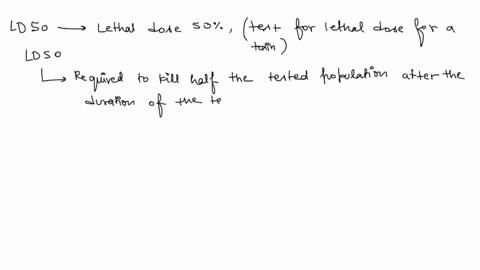 LD50 → Lethal dose 50%, (test for lethal dose for a
toxin)
LD50
↳ Required to kill half the tested population after the
duration of the te